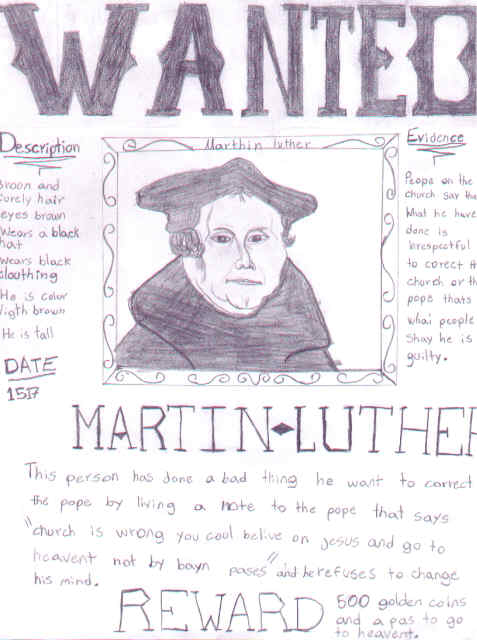 WANTED
Description
broon and
curely hair
eyes brawn
Wears a black
hat
wears black
clouthing
He is color
ligth brown
He is tall
DATE
1517
Marthin luther
Evidence
Peopo on the
church say tha
What he have
done is
breespectful
to corect th
church or th
pope thats
whai people
shay he is
guilty.
MARTIN LUTHER
This person has done a bad thing he want to correct
the pope by living a note to the pope that says
"church is wrong you coul belive on jesus and go to
heavent not by bayn pases" and he refuses to change
his mind.
REWARD
500 golden coins
and a pas to go
to heavent.